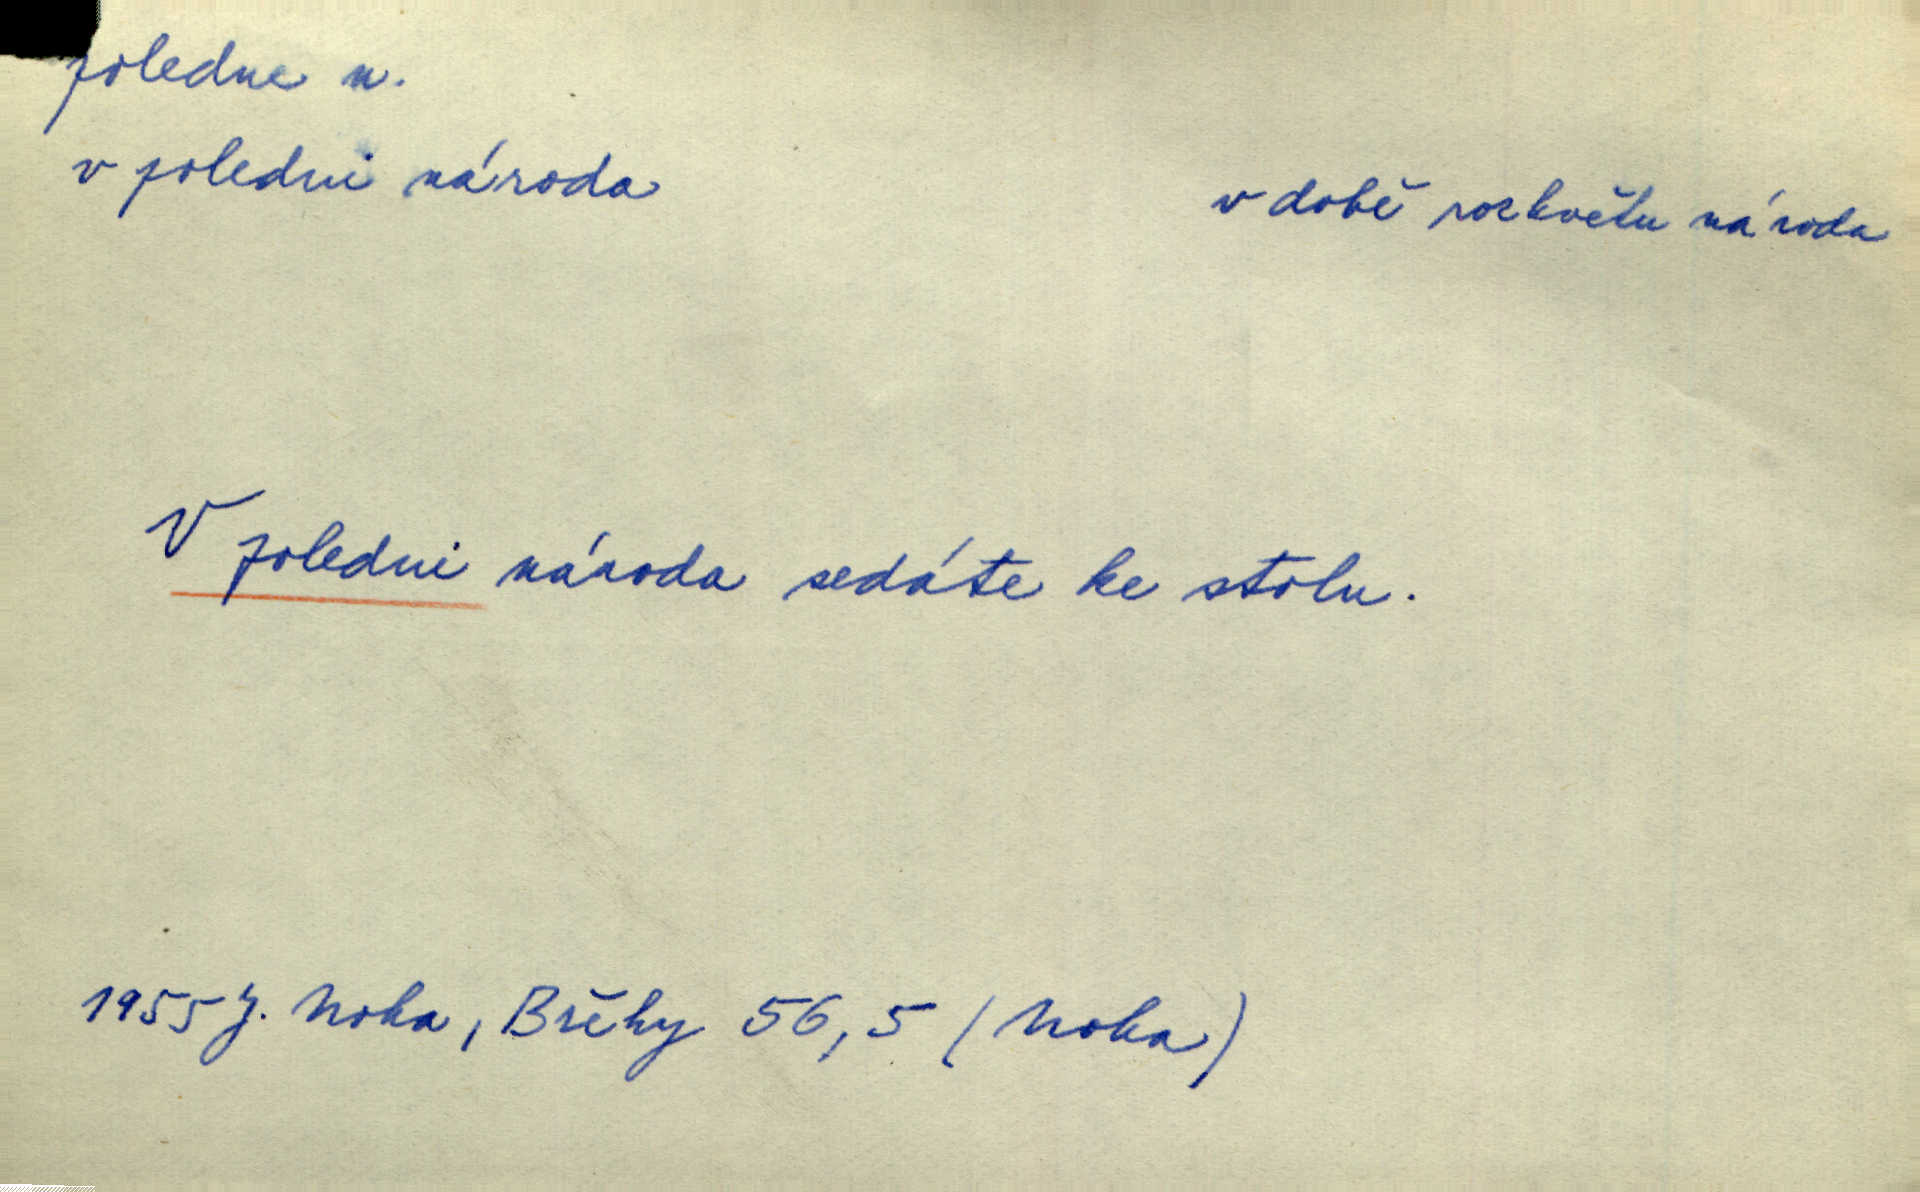 poledne n.
v poledni národa
v době rozkvětu národa
V poledni národa sedáte ke stolu.
1955 J. Noha, Břehy 56, 5 (Noha)